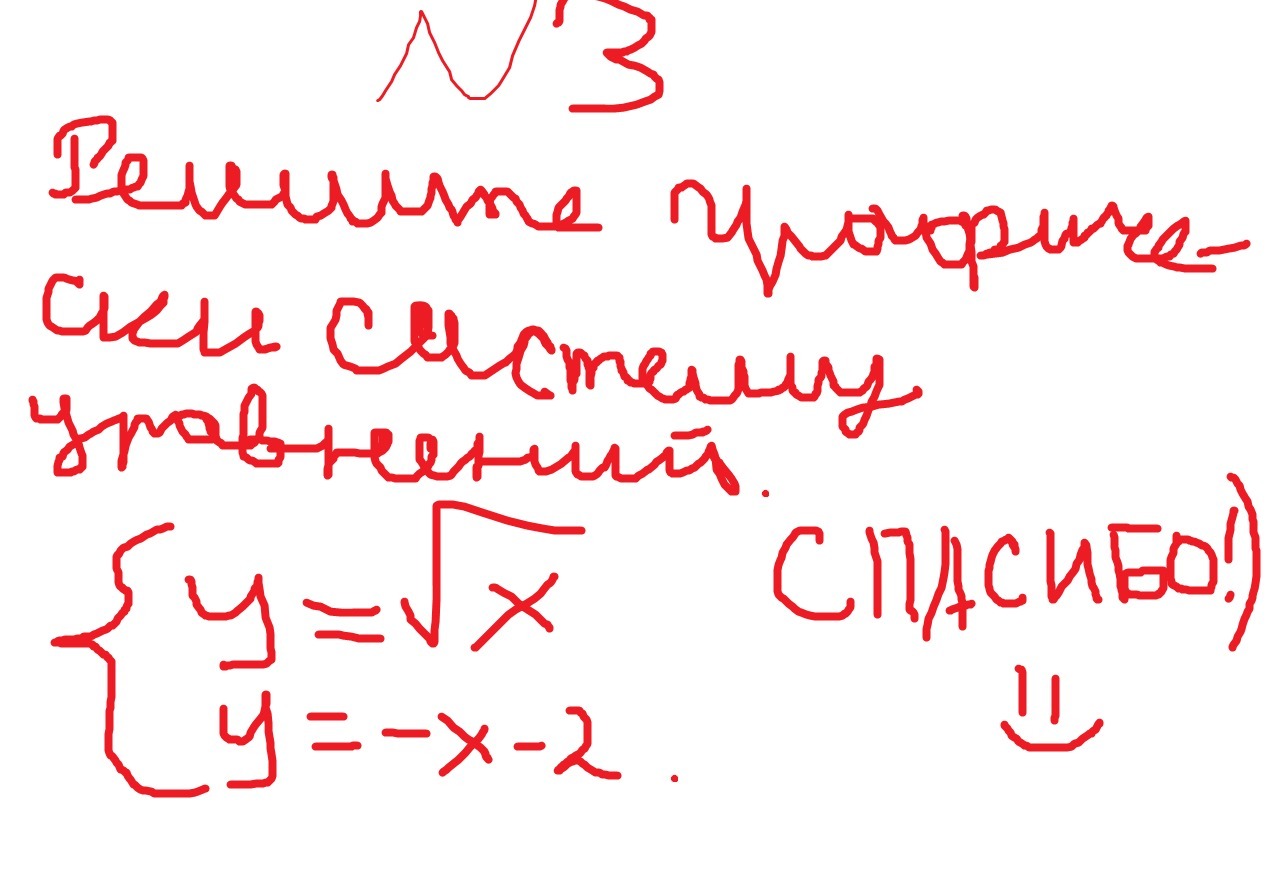 N 3
Решите графиче-
ски систему
уравнений.
y = √x
СПАСИБО!)
y = -x-2.